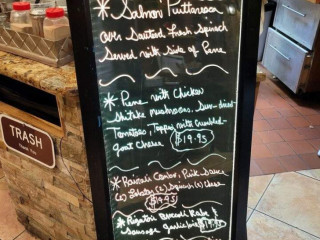 * Salmon Puttanesca
over Sauteed Fresh Spinach
Served with Side of Penne
* Penne with Chicken
Shitake mushrooms, Sun-dried
Tomatoes, Topped with Crumbled
goat Cheese $19.95
* Ravioli Combo, Pink Sauce
(2) Lobster (2) Squash (2) Cheese
$19.95
* Rigatoni Broccoli Rabe &
Sausage garlic/oil $19.95
TRASH